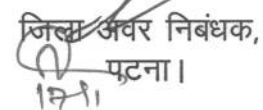 जिला अवर निबंधक,
पटना।